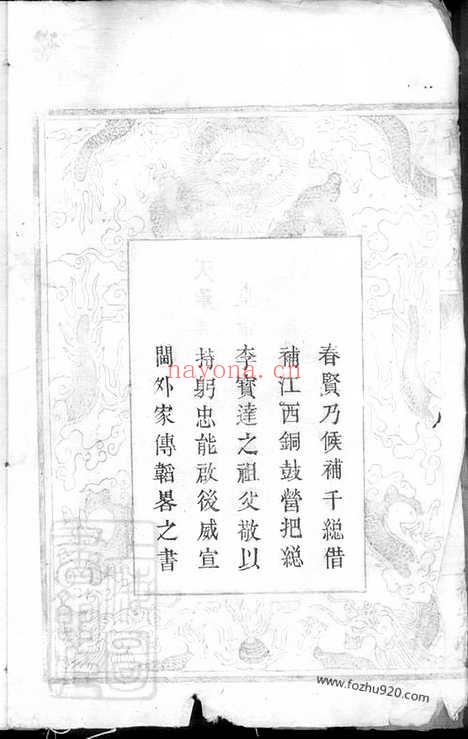 春賢乃候補千総借
補江西銅鼓營把総
李實達之祖父敬以
持躬忠能啟後威宣
閫外家傳韜畧之書
hayona.cn
www.fozhu920.com